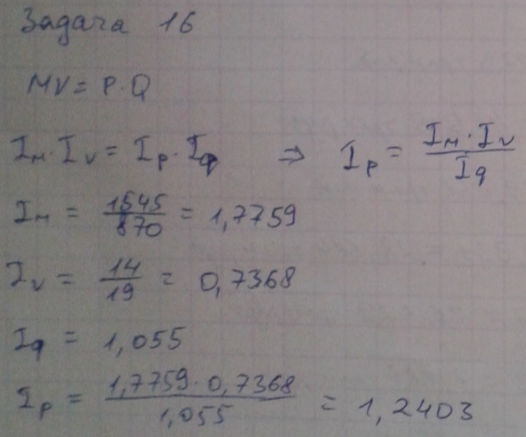 Задача 16
MV = P·Q
Iм·Iv = Ip·Iq ⇒ Ip = Iм·Iv / Iq
Iм = 1545 / 870 = 1,7759
Iv = 14 / 19 = 0,7368
Iq = 1,055
Ip = 1,7759·0,7368 / 1,055 = 1,2403